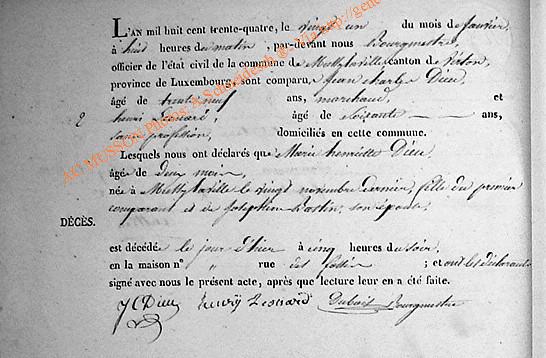 L'AN mil huit cent trente-quatre, le vingt un du mois de Janvier,
à huit heures du matin, par-devant nous Bourgmestre,
officier de l'état civil de la commune de canton de Virton,
province de Luxembourg, sont comparu, Jean charles Dieu
âgé de trente neuf ans, marchand, et
2 henri Leonard, âgé de soixante ans,
sans profession, domiciliés en cette commune.
Lesquels nous ont déclarés que Marie henriette Dieu,
âgée de deux mois,
née à le vingt novembre dernier, fille du premier
comparant et de Josephine son épouse,
DÉCÈS.
est décédée le jour d'hier à cinq heures du soir,
en la maison nº " rue des ; et ont les déclarants
signé avec nous le présent acte, après que lecture leur en a été faite.
JC Dieu henry Leonard Bourgmestre
AC MUSSON Photos: A.Schneidesch @ Via http://gene